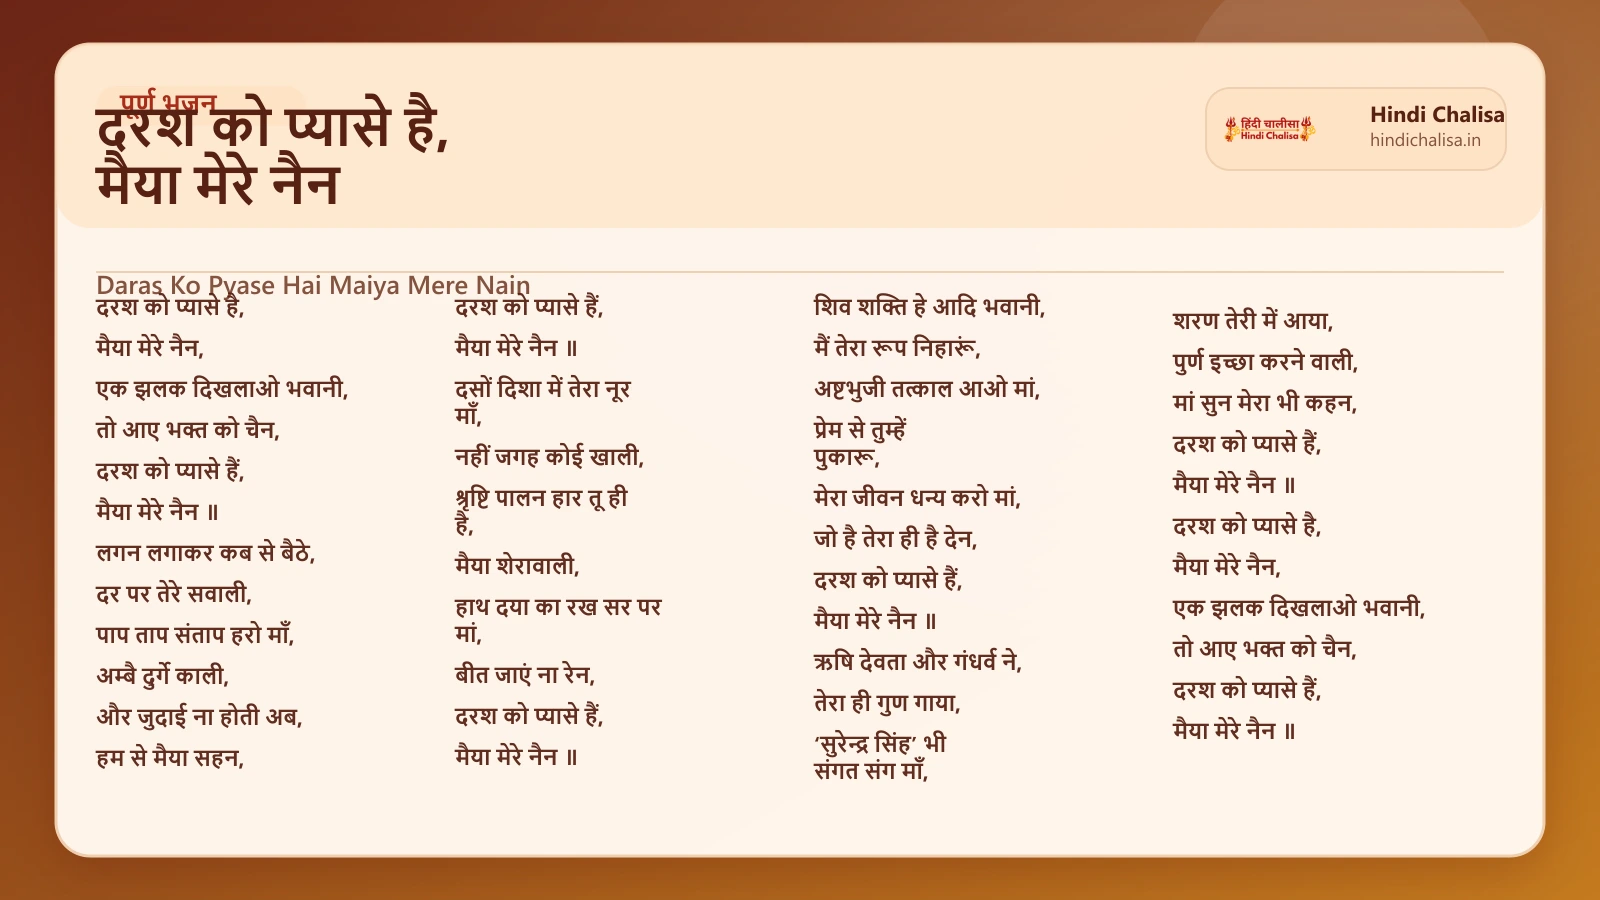 पूर्ण भजन
दरश को प्यासे है,
मैया मेरे नैन
हिंदी चालीसा
Hindi Chalisa
Hindi Chalisa
hindichalisa.in
Daras Ko Pyase Hai Maiya Mere Nain
दरश को प्यासे है,
मैया मेरे नैन,
एक झलक दिखलाओ भवानी,
तो आए भक्त को चैन,
दरश को प्यासे हैं,
मैया मेरे नैन ॥
लगन लगाकर कब से बैठे,
दर पर तेरे सवाली,
पाप ताप संताप हरो माँ,
अम्बै दुर्गे काली,
और जुदाई ना होती अब,
हम से मैया सहन,
दरश को प्यासे हैं,
मैया मेरे नैन ॥
दसों दिशा में तेरा नूर
माँ,
नहीं जगह कोई खाली,
श्रृष्टि पालन हार तू ही
है,
मैया शेरावाली,
हाथ दया का रख सर पर
मां,
बीत जाएं ना रेन,
दरश को प्यासे हैं,
मैया मेरे नैन ॥
शिव शक्ति हे आदि भवानी,
मैं तेरा रूप निहारूं,
अष्टभुजी तत्काल आओ मां,
प्रेम से तुम्हें
पुकारू,
मेरा जीवन धन्य करो मां,
जो है तेरा ही है देन,
दरश को प्यासे हैं,
मैया मेरे नैन ॥
ऋषि देवता और गंधर्व ने,
तेरा ही गुण गाया,
‘सुरेन्द्र सिंह’ भी
संगत संग माँ,
शरण तेरी में आया,
पुर्ण इच्छा करने वाली,
मां सुन मेरा भी कहन,
दरश को प्यासे हैं,
मैया मेरे नैन ॥
दरश को प्यासे है,
मैया मेरे नैन,
एक झलक दिखलाओ भवानी,
तो आए भक्त को चैन,
दरश को प्यासे हैं,
मैया मेरे नैन ॥